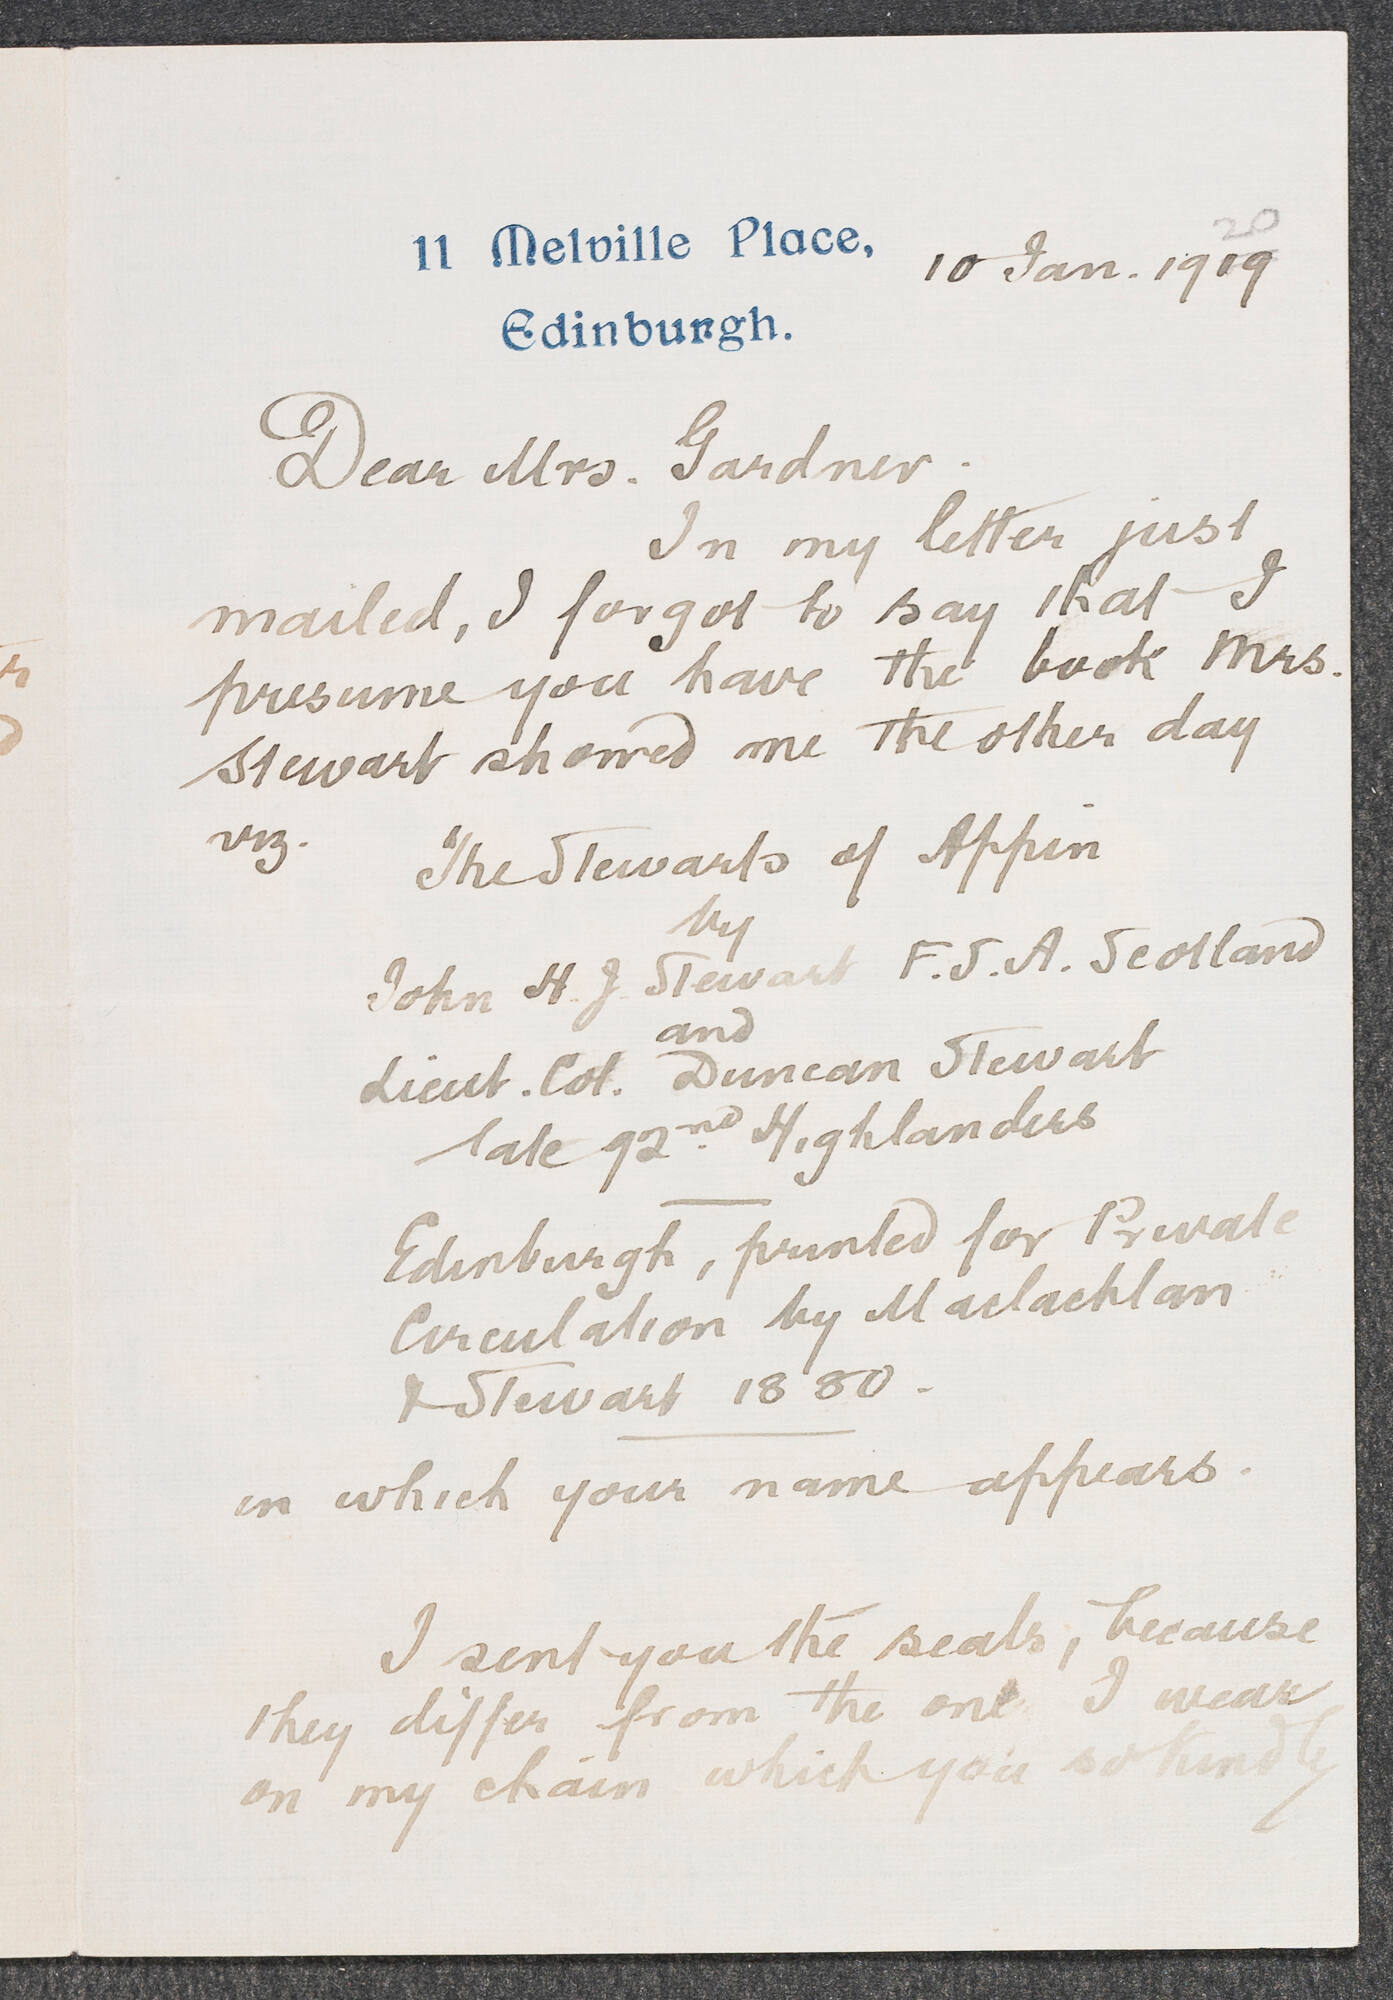 11 Melville Place,
Edinburgh.
20
10 Jan. 1919
Dear Mrs. Gardner.
In my letter just
mailed, I forgot to say that I
presume you have the book Mrs.
Stewart showed me the other day
viz. "The Stewarts of Appin
by
John H. J. Stewart F.S.A. Scotland
and
Lieut. Col. Duncan Stewart
late 92nd Highlanders
Edinburgh, printed for Private
Circulation by Maclachlan
& Stewart 1880.
in which your name appears.
I sent you the seals, because
they differ from the one I wear
on my chain which you so kindly